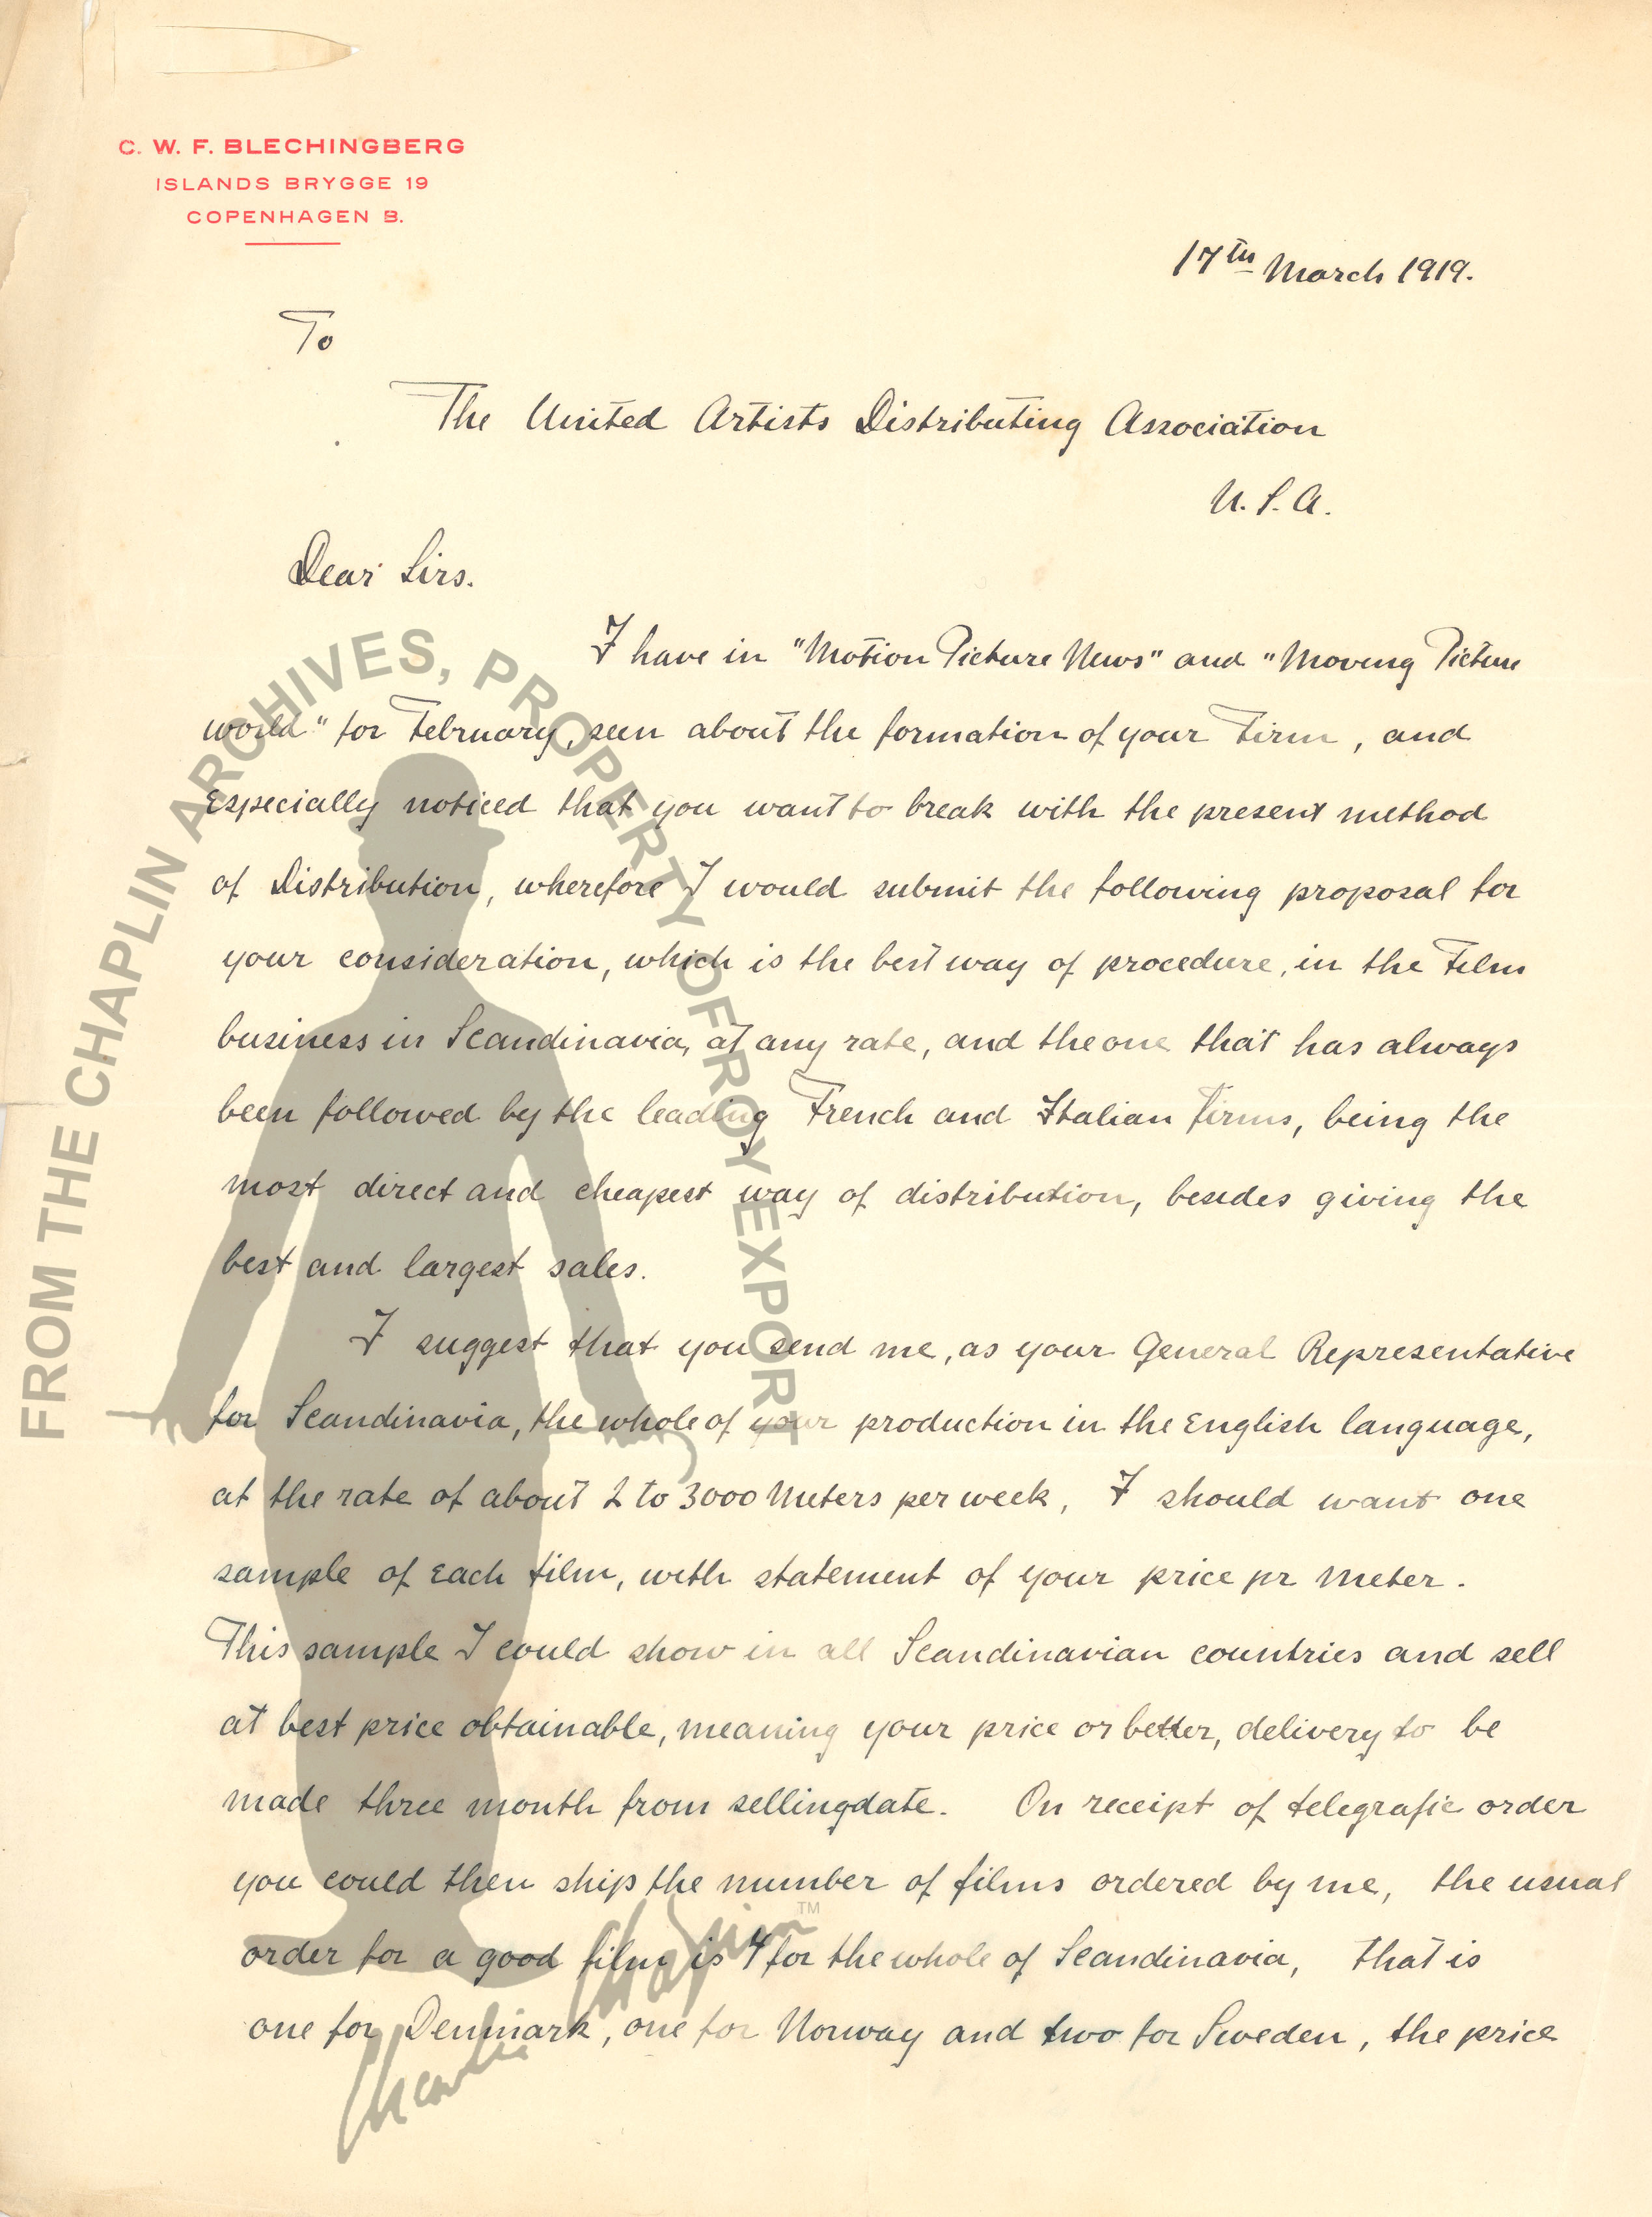 C. W. F. BLECHINGBERG
ISLANDS BRYGGE 19
COPENHAGEN B.
17th March 1919.
To
The United Artists Distributing Association
U.S.A.
Dear Sirs.
I have in "Motion Picture News" and "Moving Picture
World" for February, seen about the formation of your Firm, and
Especially noticed that you want to break with the present method
of Distribution, wherefore I would submit the following proposal for
your consideration, which is the best way of procedure, in the Film
business in Scandinavia, at any rate, and the one that has always
been followed by the leading French and Italian Firms, being the
most direct and cheapest way of distribution, besides giving the
best and largest sales.
I suggest that you send me, as your General Representative
for Scandinavia, the whole of your production in the English language,
at the rate of about 2 to 3000 Meters per week, I should want one
sample of Each film, with statement of your price pr Meter.
This sample I could show in all Scandinavian countries and sell
at best price obtainable, meaning your price or better, delivery to be
made three month from sellingdate. On receipt of telegrafic order
you could then ship the number of films ordered by me, the usual
order for a good film is 4 for the whole of Scandinavia, that is
one for Denmark, one for Norway and two for Sweden, the price
FROM THE CHAPLIN ARCHIVES, PROPERTY OF ROY EXPORT
Charlie Chaplin™